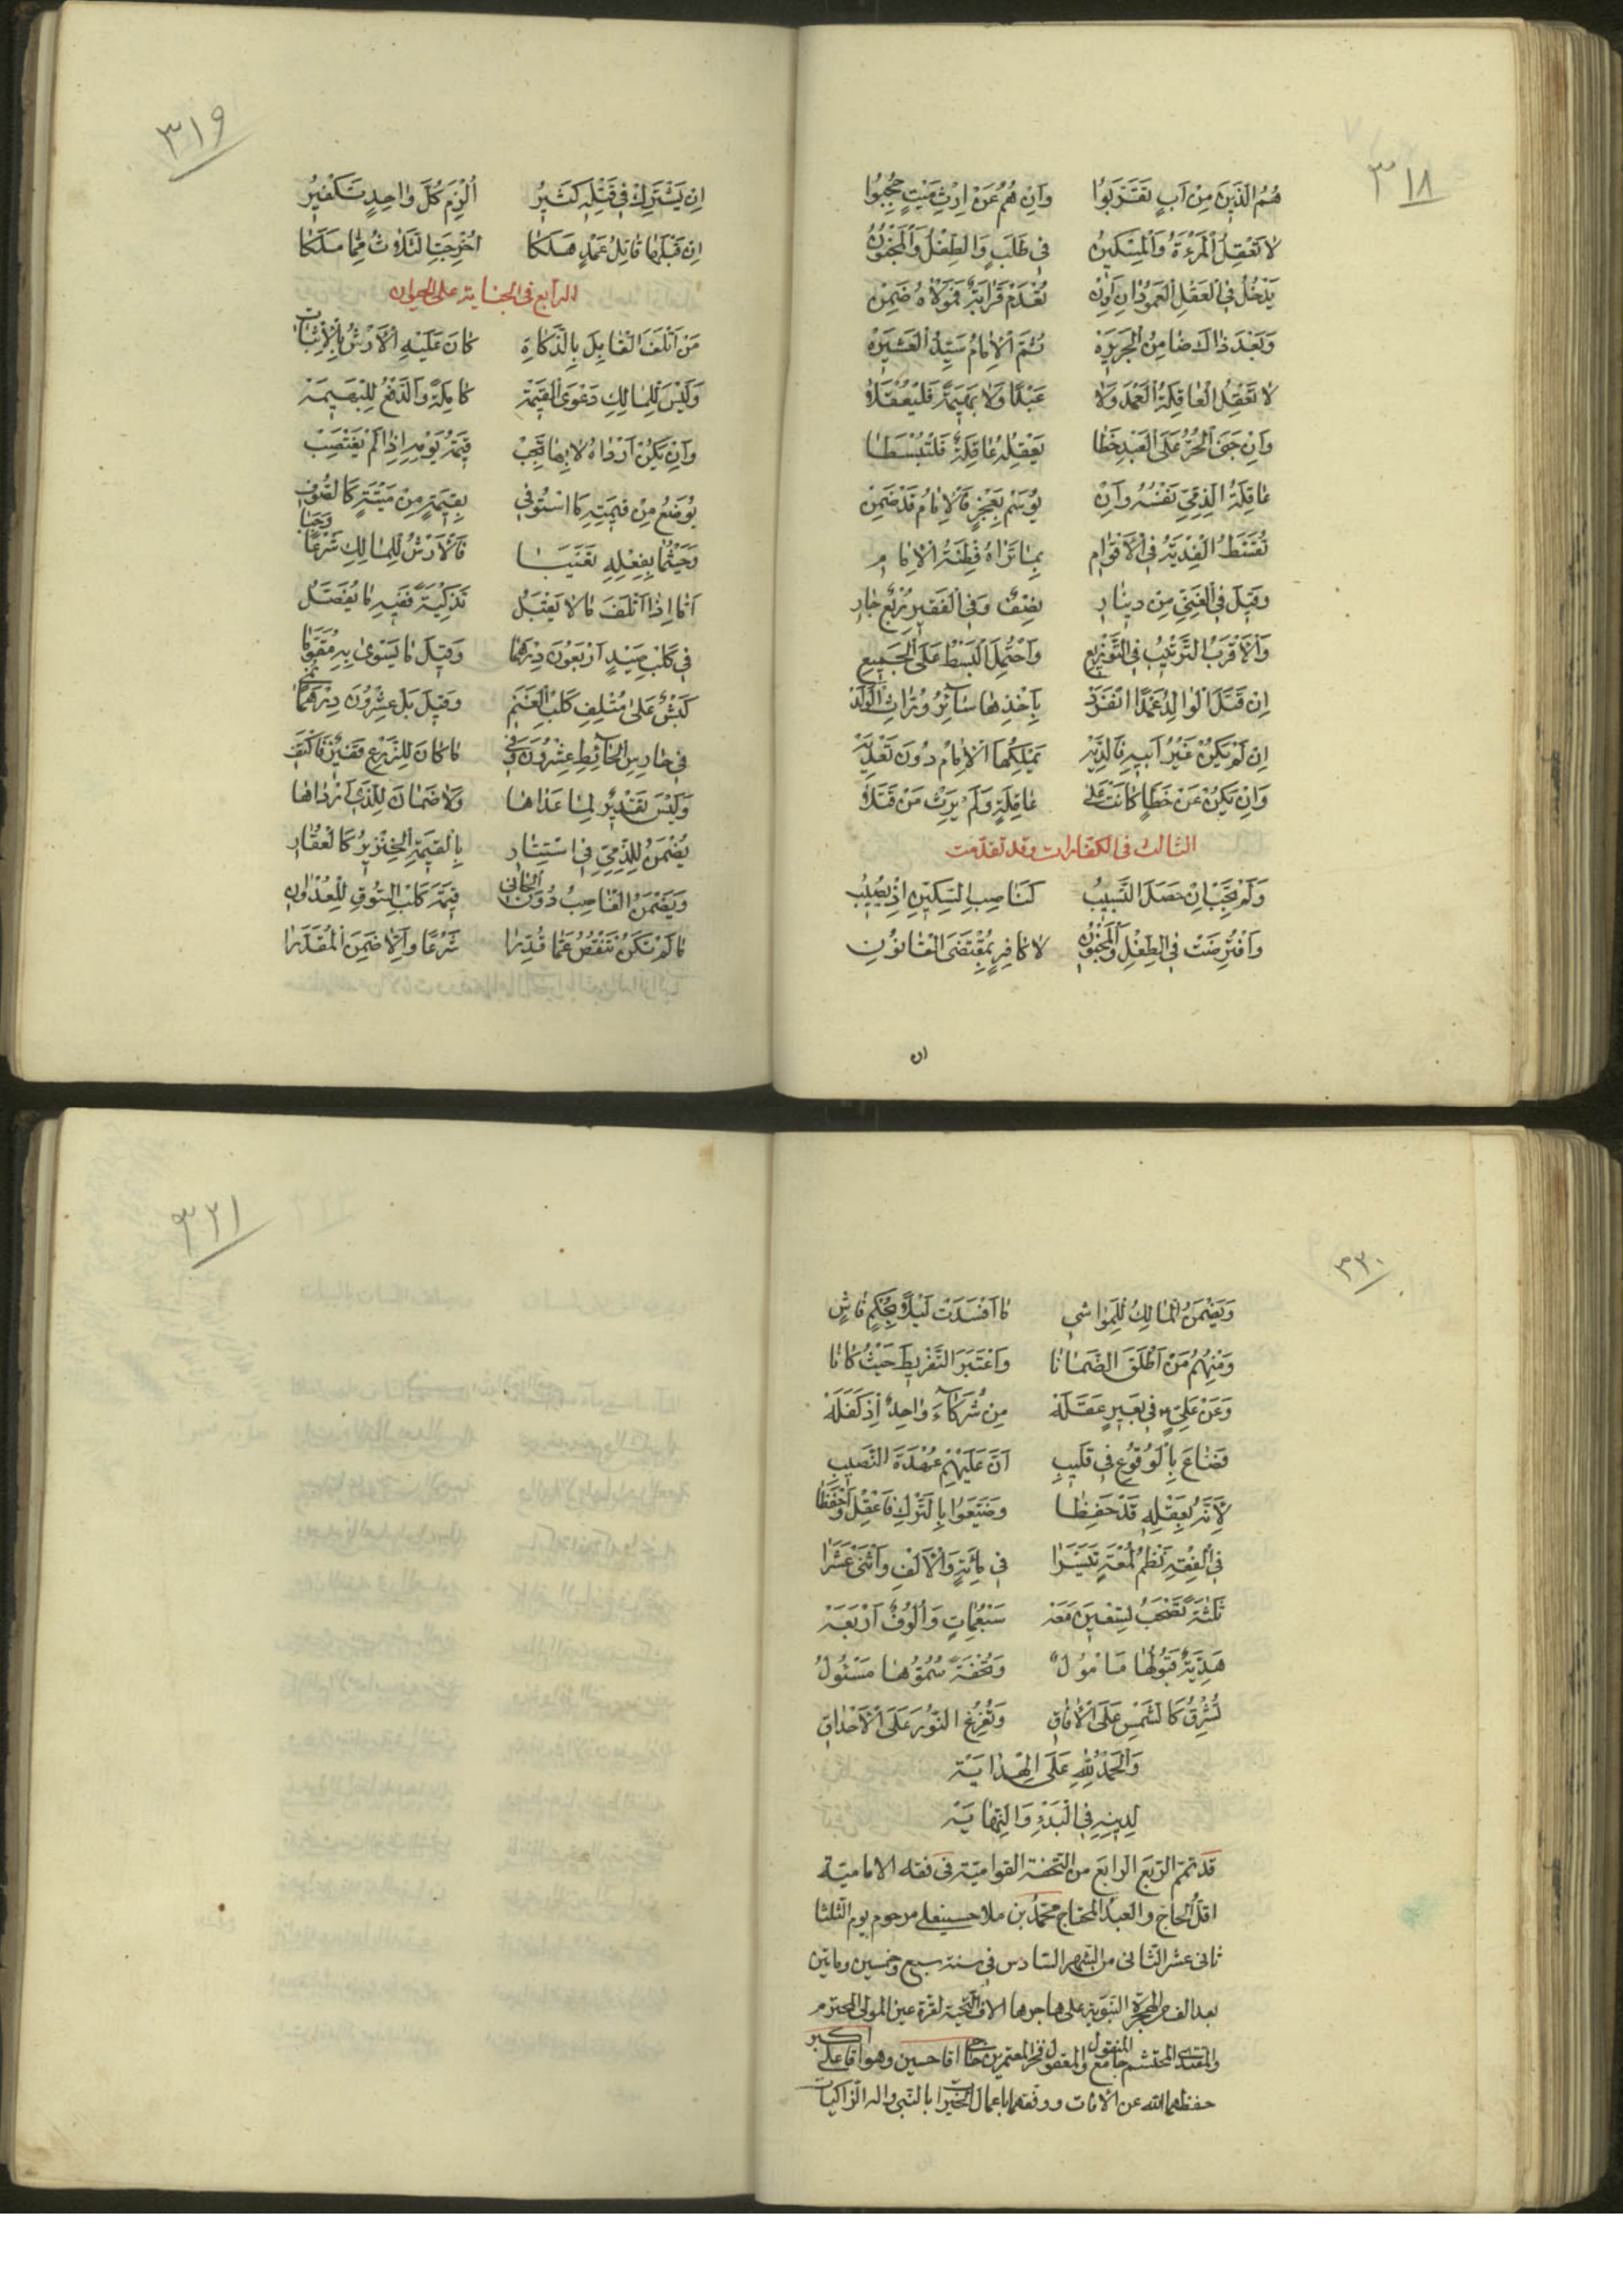 ٣١٨
هُمُ الَّذِينَ مِنْ اَبٍ تَقَرَّبُوا وَاِنْ هُمُ عَنْ اِرْثِ مَيْتٍ حُجِبُوا
لا تَعْقِلُ الْمَرْءَةُ وَالْمِسْكِينُ فِي طَلَبٍ وَالطِّفْلُ وَالْمَجْنُونُ
يَدْخُلُ فِي الْعَقْلِ الْعَمُودَانِ اَوْاِنْ تُعْدَمْ قَرَابَةٌ فَمَوْلاهُ ضَمِنْ
وَبَعْدَ ذَاكَ ضَامِنُ الْجَرِيرَةِ ثُمَّ الْاِمَامُ سَيِّدُ الْعَشِيرَةِ
لا تَعْقِلُ الْعَاقِلَةُ الْعَمْدَ وَلا عَبْدًا وَلا بَهِيمَةً فَلْيُعْقَلا
وَاِنْ جَنَى الْحُرُّ عَلَى الْعَبْدِ خَطَا يَعْقِلُهُ عَاقِلَةٌ فَلْتُبْسَطَا
عَاقِلَةُ الذِّمِّيِّ نَفْسُهُ وَاِنْ يُوسَمْ بِعَجْزٍ فَالْاِمَامُ قَدْ ضَمِنْ
تُقَسَّطُ الْفِدْيَةُ فِي الْاَقْوَامِ بِمَا تَرَاهُ فِطْنَةُ الْاِمَامِ
وَقِيلَ فِي الْغَنِيِّ مِنْ دِينَارِ نِصْفٌ وَفِي الْفَقِيرِ رُبْعٌ جَارِ
وَالْاَقْرَبُ التَّرْتِيبُ فِي التَّوْزِيعِ وَاحْتُمِلَ الْبَسْطُ عَلَى الْجَمِيعِ
اِنْ قَتَلَ الْوَالِدُ عَمْدًا انْفَرَدَ بِاَخْذِهَا سَائِرُ وُرَّاثِ الْوَلَدْ
اِنْ لَمْ يَكُنْ غَيْرُ اَبِيهِ فَالدِّيَهْ يَمْلِكُهَا الْاِمَامُ دُونَ تَعْدِيَهْ
وَاِنْ يَكُنْ عَنْ خَطَإٍ كَانَتْ عَلَى عَاقِلَةٍ وَلَمْ يَرِثْ مَنْ قَتَلا
الثالث في الكفارات وقد تقدمت
وَلَمْ تَجِبْ اِنْ حَصَلَ التَّسْبِيبُ كَنَاصِبِ السِّكِّينِ اِذْ يُصِيبُ
وَافْتُرِضَتْ فِي الطِّفْلِ وَالْمَجْنُونِ لا كَافِرٍ بِمُقْتَضَى الْقَانُونِ
ان
٣١٩
اِنْ يَشْتَرِكْ فِي قَتْلِهِ كَثِيرُ اُلْزِمَ كُلَّ وَاحِدٍ تَكْفِيرُ
اِنْ قَبْلَهَا قَاتِلُ عَمْدٍ هَلَكَا اُخْرِجَتِ الثَّلاثُ مِمَّا مَلَكَا
الرابع في الجناية على الحيوان
مَنْ اَتْلَفَ الْقَابِلَ بِالذَّكَاةِ كَانَ عَلَيْهِ الْاَرْشُ بِالْاِثْبَاتِ
وَلَيْسَ لِلْمَالِكِ دَعْوَى الْقِيمَةِ كَامِلَةً وَالدَّفْعُ لِلْبَهِيمَةْ
وَاِنْ يَكُنْ اَرْدَاهُ لا بِهَا تَجِبْ قِيمَةُ يَوْمِهِ اِذَا لَمْ يَغْتَصِبْ
يُوضَعُ مِنْ قِيمَتِهِ مَا اسْتُوفِي بِقِيمَةٍ مِنْ مَيْتَةٍ كَالصُّوفِ
وَحَيْثُمَا بِفِعْلِهِ تَعَيَّبَا فَالْاَرْشُ لِلْمَالِكِ شَرْعًا وَجَبَا
اَمَّا اِذَا اَتْلَفَ مَا لا يَقْبَلُ تَذْكِيَةً فَفِيهِ مَا يُفَصَّلُ
فِي كَلْبِ صَيْدٍ اَرْبَعُونَ دِرْهَمًا وَقِيلَ مَا يَسْوَى بِهِ مُقَوَّمَا
كَبْشٌ عَلَى مُتْلِفِ كَلْبِ الْغَنَمِ وَقِيلَ بَلْ عِشْرُونَ دِرْهَمًا
فِي حَارِسِ الْحَائِطِ عِشْرُونَ وَفِي مَا كَانَ لِلزَّرْعِ قَفِيزٌ فَاكْتَفِ
وَلَيْسَ تَقْدِيرٌ لِمَا عَدَاهَا وَلا ضَمَانَ لِلَّذِي اَرْدَاهَا
يُضْمَنُ لِلذِّمِّيِّ فِي اسْتِتَارِ بِالْقِيمَةِ الْخِنْزِيرُ كَالْعُقَارِ
وَيَضْمَنُ الْغَاصِبُ دُونَ الْجَانِي قِيمَةَ كَلْبِ السُّوقِ لِلْعُدْوَانِ
مَا لَمْ تَكُنْ تَنْقُصُ عَمَّا قُدِّرَا شَرْعًا وَاِلَّا ضَمِنَ الْمُقَدَّرَا
٣٢٠
وَيَضْمَنُ الْمَالِكُ لِلْمَوَاشِي مَا اَفْسَدَتْ لَيْلًا بِحُكْمٍ فَاشٍ
وَمِنْهُمُ مَنْ اَطْلَقَ الضَّمَانَا وَاعْتَبَرَ التَّفْرِيطَ حَيْثُ كَانَا
وَعَنْ عَلِيٍّ فِي بَعِيرٍ عَقَلَهْ مِنْ شُرَكَاءَ وَاحِدٌ اِذْ كَفَلَهْ
فَضَاعَ بِالْوُقُوعِ فِي قَلِيبِ اَنَّ عَلَيْهِمْ عُهْدَةَ النَّصِيبِ
لِاَنَّهُ بِعَقْلِهِ قَدْ حَفِظَا وَضَيَّعُوا بِالتَّرْكِ فَاعْقِلْ وَاحْفَظَا
فِي الْفِقْهِ نَظْمُ لُمْعَةٍ تَيَسَّرَا فِي مِائَةٍ وَالْاَلْفِ وَاثْنَيْ عَشَرَا
ثَلٰثَةً تَصْحَبُ تِسْعِينَ مَعَهْ سَبْعُمِاتٍ وَاُلُوفٌ اَرْبَعَهْ
هَدِيَّةٌ قَبُولُهَا مَأْمُولُ وَتُحْفَةٌ سُمُوُّهَا مَسْئُولُ
تُشْرِقُ كَالشَّمْسِ عَلَى الْآفَاقِ وَتُفْرِغُ النُّورَ عَلَى الْاَحْدَاقِ
وَالْحَمْدُ لِلّٰهِ عَلَى الْهِدَايَةْ
لِدِينِهِ فِي الْبَدْءِ وَالنِّهَايَةْ
قد تمم الربع الرابع من التحفة القوامية في فقه الامامية
اقل الحاج والعبد المحتاج محمد بن ملا حسينعلي مرحوم يوم الثلثا
ثاني عشر الثاني من الشهر السادس في سنة سبع وخمسين وماتين
بعد الف من الهجرة النبوية على هاجرها الاف التحية لقرة عين المولى المحترم
والمقتدى المحتشم جامع المنقول والمعقول فخر المعتمرين حاجي اقا حسين وهو اقا علي اكبر
حفظهما الله عن الافات ووفقهما باعمال الخيرات بالنبي واله الزاكيات
٣٢١